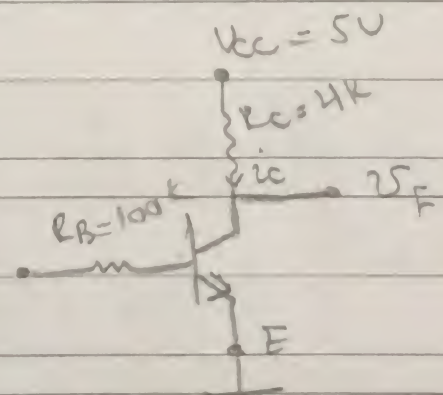 Vcc = 5V
Rc = 4k
ic
RB = 100k
E